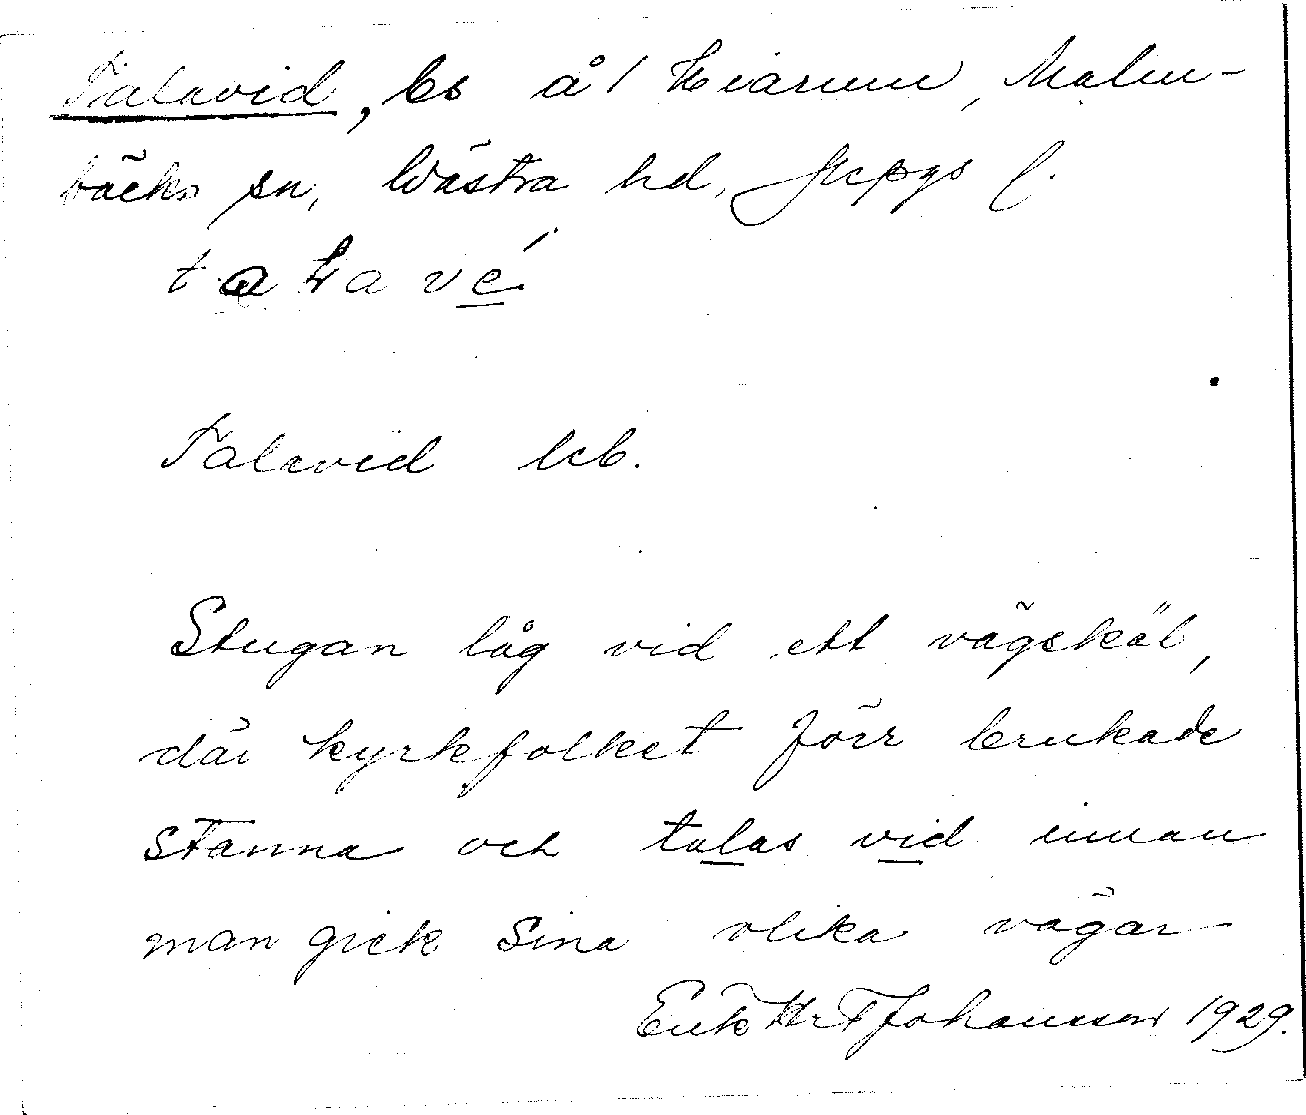 Talavid, bs å 1 Hiarum, Malm-
bäcks sn, Västra hd, Jkpgs l.
talavé
Talavid lcb.
Stugan låg vid ett vägskäl,
där kyrkfolket förr brukade
stanna och talas vid innan
man gick sina olika vägar
Johansson 1929.